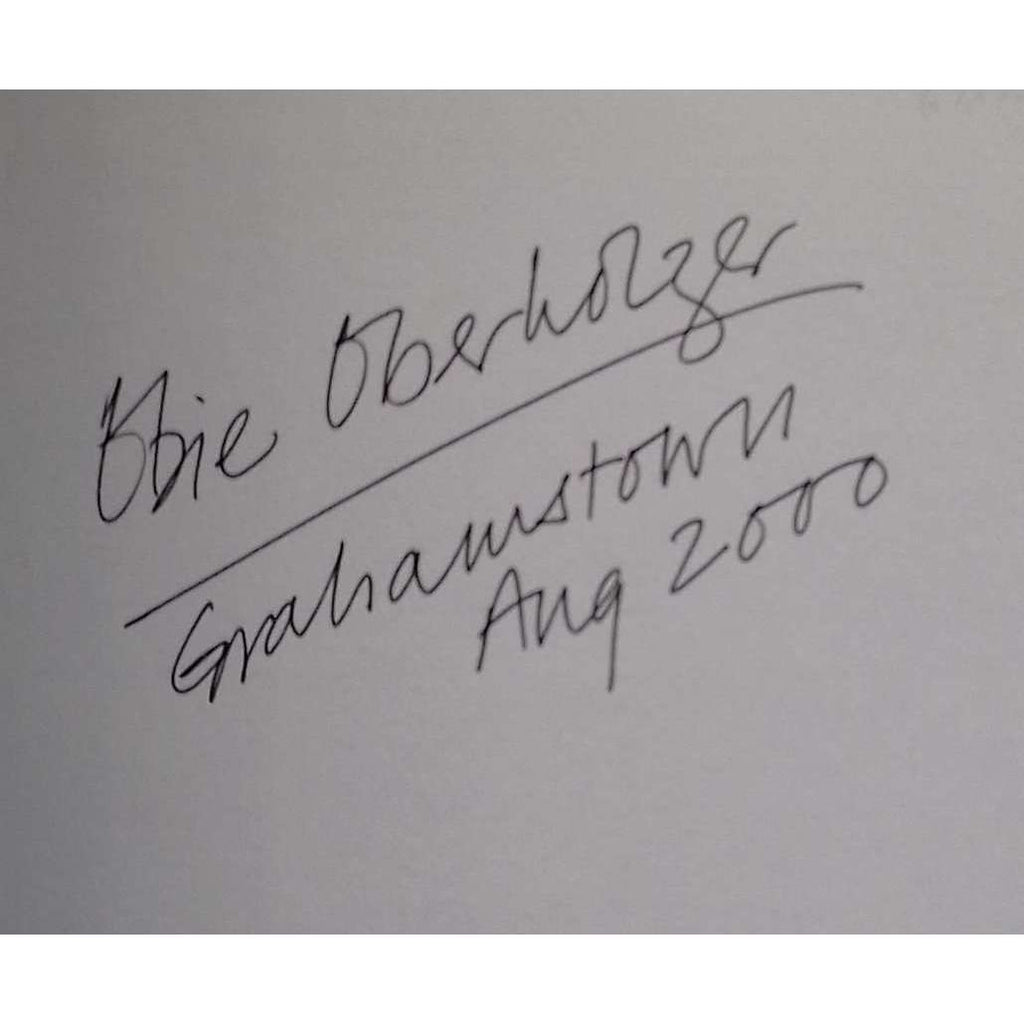 Obie Oberholzer
Grahamstown
Aug 2000